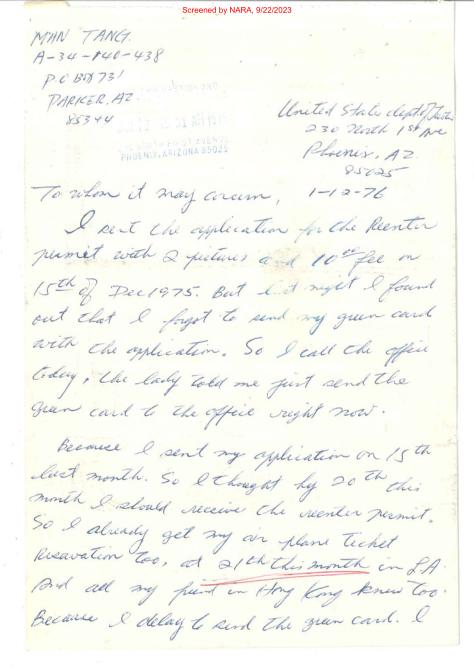 Screened by NARA, 9/22/2023
MAN TANG
A-34-140-438
P O BOX 731
PARKER, AZ.
85344
PHOENIX, ARIZONA 85025
United States dept of Justice
230 North 1st Ave
Phoenix, AZ
85025
To whom it may concern, 1-12-76
I sent the application for the Reenter
permit with 2 pictures and 10.00 fee on
15th of Dec 1975. But last night I found
out that I forgot to send my green card
with the application. So I call the office
today, the lady told me just send the
green card to the office right now.
Because I sent my application on 15th
last month. So I thought by 20th this
month I should receive the reenter permit.
So I already get my air plane ticket
Resavation too, at 21th this month in LA.
And all my friend in Hong Kong knew too.
Because I delay to send the green card. I